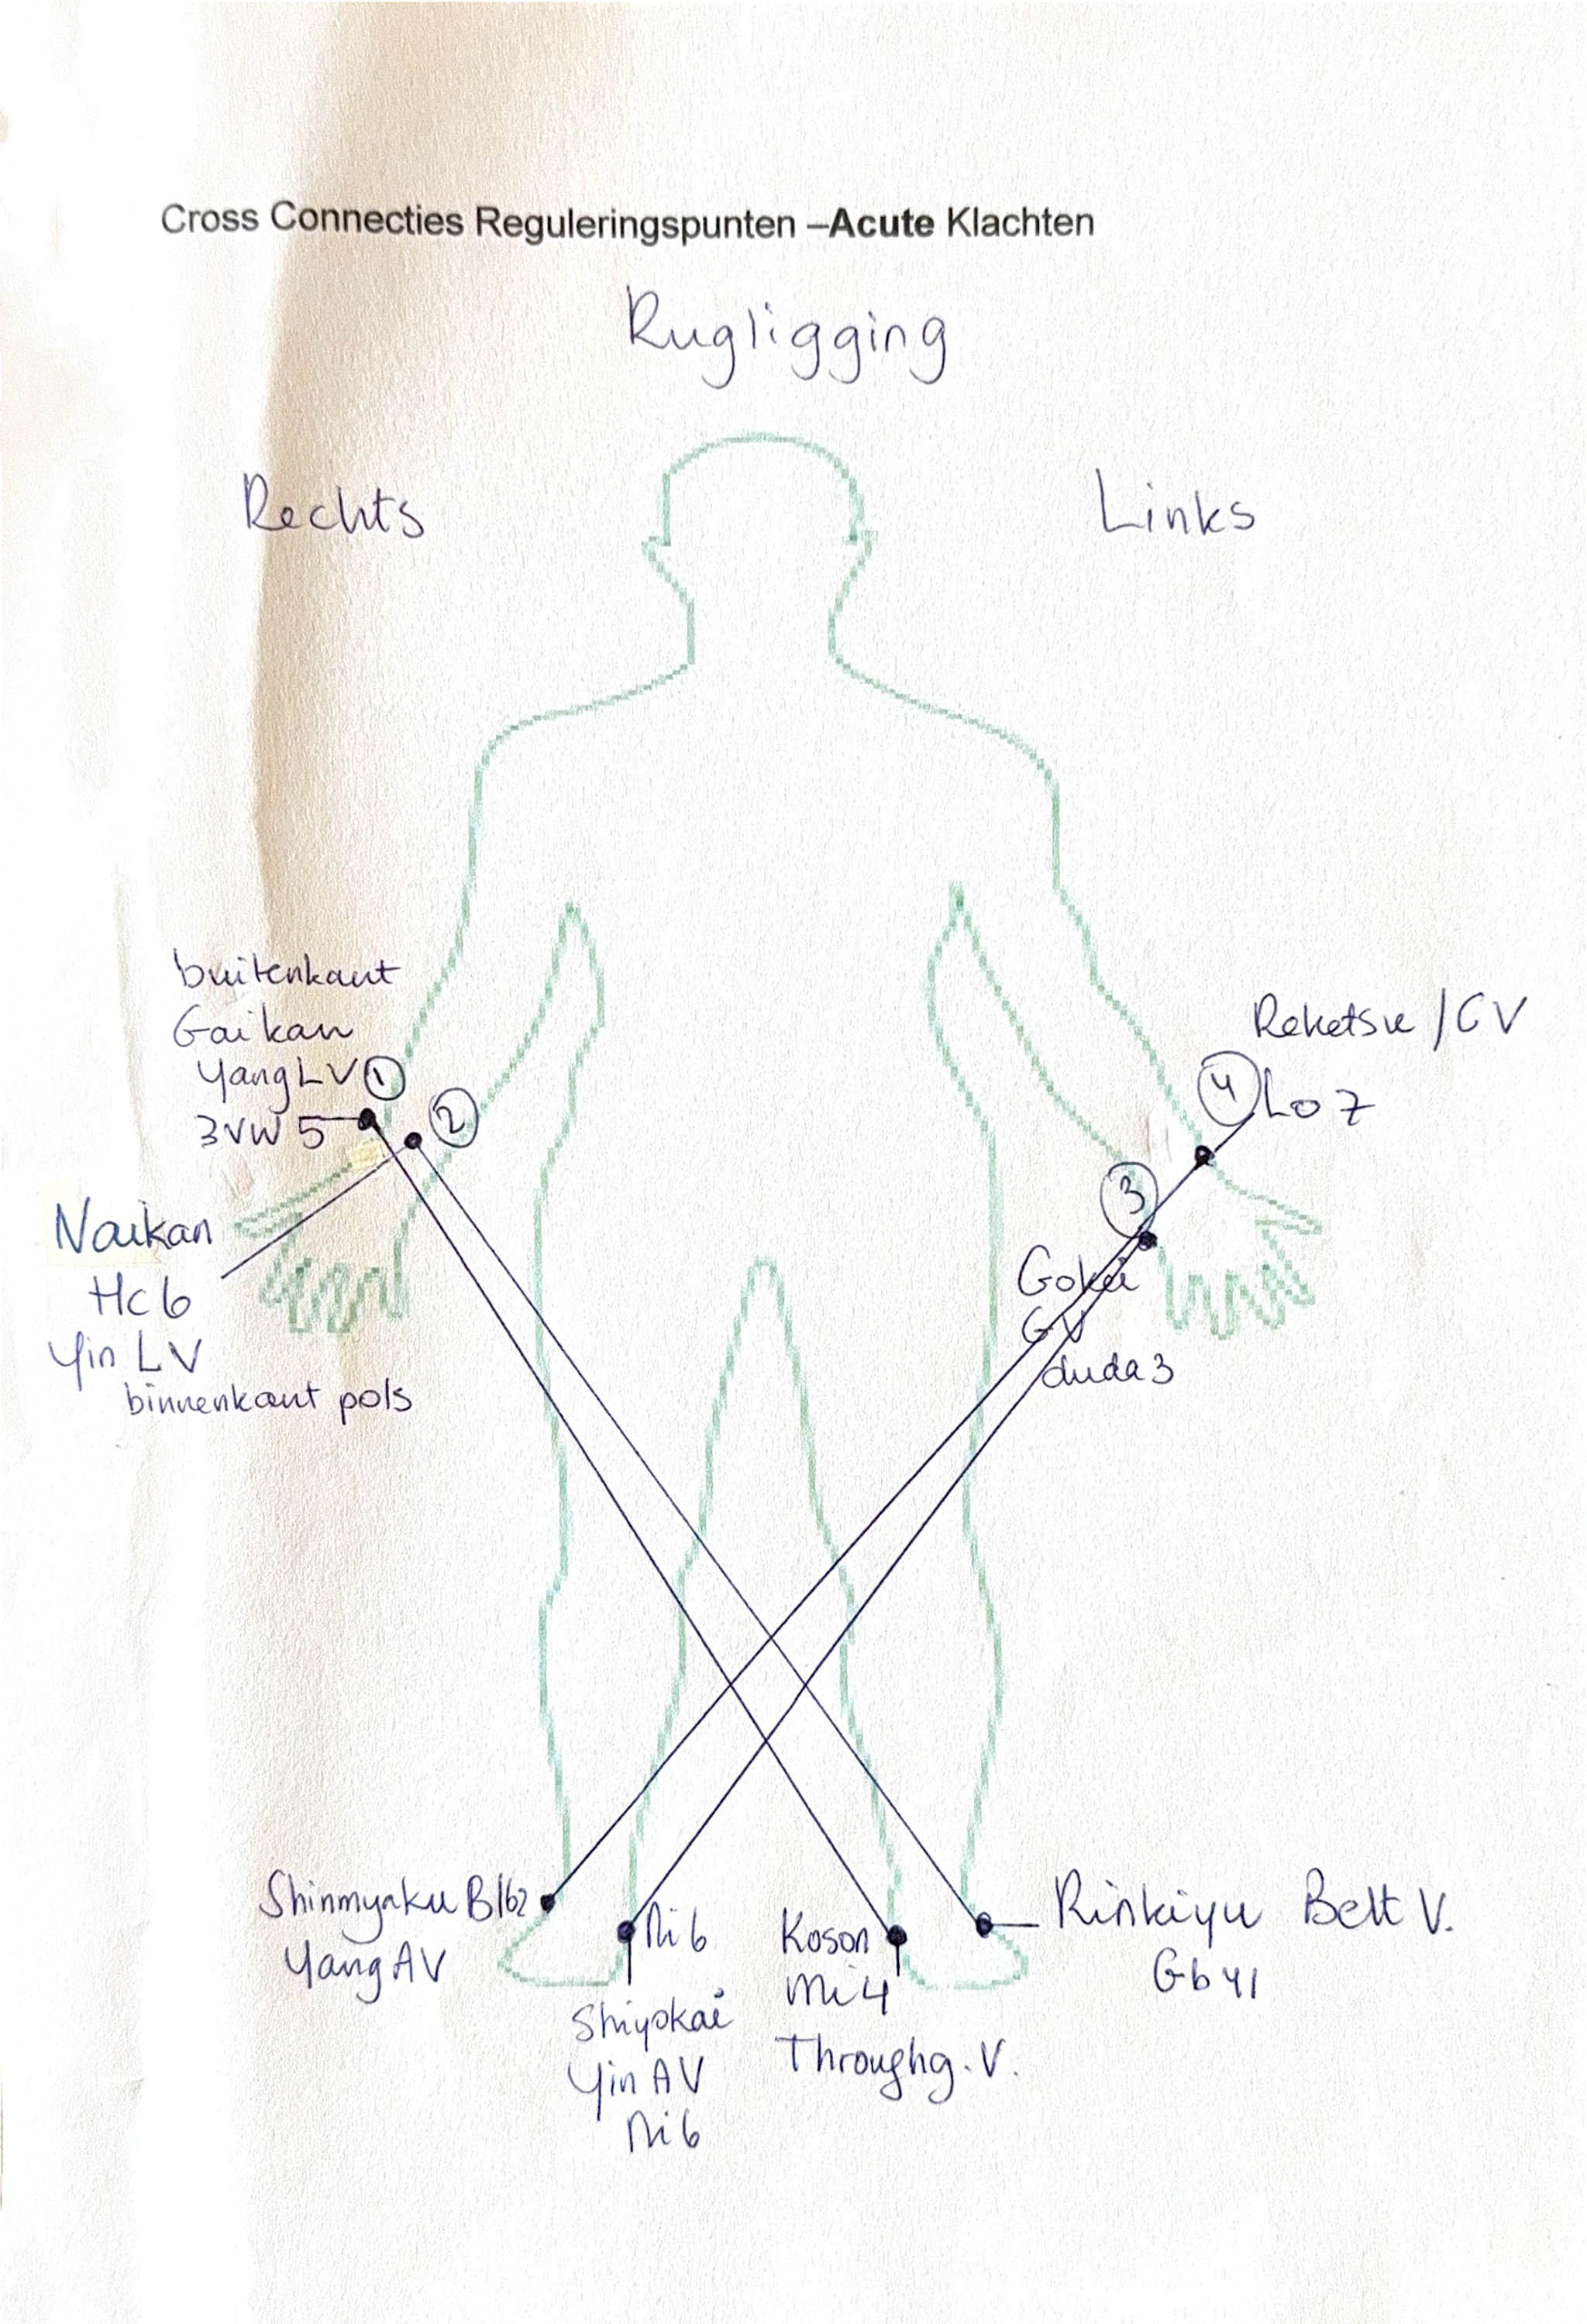 Cross Connecties Reguleringspunten –Acute Klachten
Rugligging
Rechts
Links
buitenkant
Gaikan
Yang LV ①
3VW 5
②
Naikan
Hc 6
Yin LV
binnenkant pols
Reketsu / CV
④ Lo 7
③
Gokei
GV
duda 3
Shinmyaku Bl62
Yang AV
Ni 6
Shiyokai
Yin AV
Ni 6
Koson
Mi 4
Throughg. V.
Rinkiyu Belt V.
Gb 41